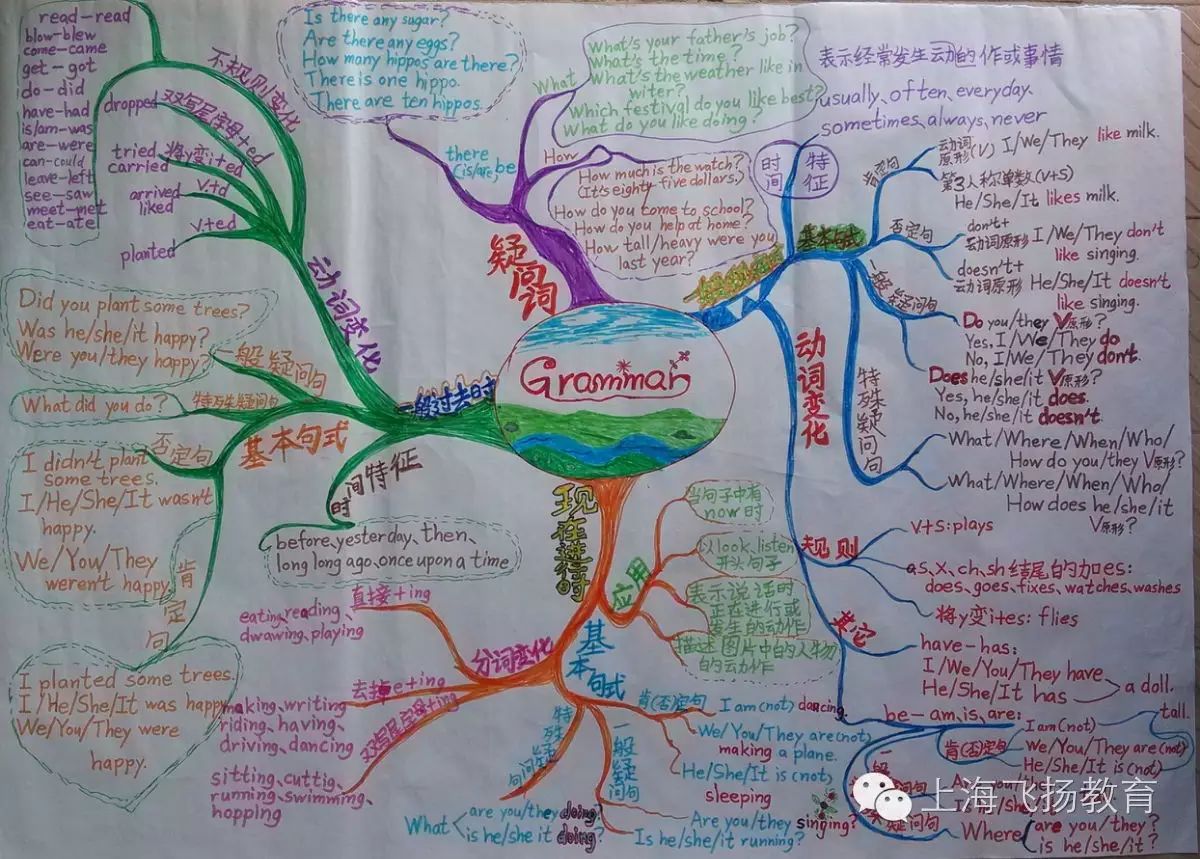 Grammar
疑问词
there (is/are) be
Is there any sugar?
Are there any eggs?
How many hippos are there?
There is one hippo.
There are ten hippos.
What
What's your father's job?
What's the time?
What's the weather like in
witer?
Which festival do you like best?
What do you like doing?
How
How much is the watch?
(It's eighty-five dollars.)
How do you come to school?
How do you help at home?
How tall/heavy were you
last year?
时间
特征
表示经常发生动的作或事情
usually、often、everyday.
sometimes、always、never
基本句式
肯定句
动词
原形(V) I/We/They like milk.
第3人称单数(V+S)
He/She/It likes milk.
否定句
don't+
动词原形 I/We/They don't
like singing.
doesn't+
动词原形 He/She/It doesn't
like singing.
一般疑问句
Do you/they V原形?
Yes, I/We/They do
No, I/We/They don't.
Does he/she/it V原形?
Yes, he/she/it does.
No, he/she/it doesn't.
特殊疑问句
What/Where/When/Who/
How do you/they V原形?
What/Where/When/Who/
How does he/she/it
V原形?
动词变化
规则
V+S: plays
as、X、ch、sh结尾的加es:
does、goes、fixes、watches、washes
将y变ites: flies
其它
have-has:
I/We/You/They have
He/She/It has
a doll.
be-am、is、are:
肯(否)定句
I am (not)
We/You/They are (not)
He/She/It is (not)
tall.
疑问句
Where
are you/they?
is he/she/it?
现在进行时
应用
当句子中有
now时
以look、listen
开头句子
表示说话的
正在进行或
发生的动作
描述图片中的人物
的动作
基本句式
肯(否)定句
I am (not) dancing
We/You/They are (not)
making a plane.
He/She/It is (not)
sleeping
一般疑问句
Are you/they singing?
Is he/she/it running?
特殊疑问句
What
are you/they doing?
is he/she it doing?
分词变化
直接+ing
eating、reading、
dwawing、playing
去掉e+ing
making、writing
riding、having、
driving、dancing
双写尾字母+ing
sitting、cuttig、
running、swimming、
hopping
一般过去时
时间特征
before、yesterday、then、
long long ago、once upon a time
基本句式
一般疑问句
Did you plant some trees?
Was he/she/it happy?
Were you/they happy?
特殊疑问句
What did you do?
否定句
I didn't plant
some trees.
I/He/She/It wasn't
happy.
We/You/They
weren't happy
肯定句
I planted some trees.
I/He/She/It was happy
We/You/They were
happy.
动词变化
不规则变化
read-read
blow-blew
come-came
get-got
do-did
have-had
is/am-was
are-were
can-could
leave-left
see-saw
meet-met
eat-ate
双写尾字母+ed
dropped
将y变i+ed
tried
carried
V+d
arrived
liked
V+ed
planted
上海飞扬教育